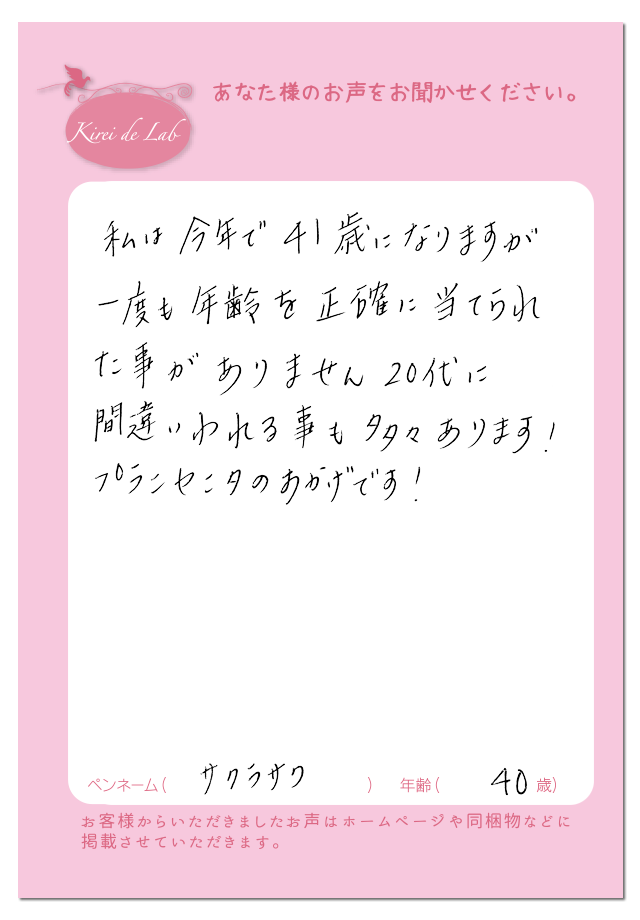 あなた様のお声をお聞かせください。
Kirei de Lab
私は今年で41歳になりますが
一度も年齢を正確に当てられ
た事がありません20代に
間違いわれる事も多々あります!
プランセンニタのおかげです!
ペンネーム( サクラサク ) 年齢( 40 歳)
お客様からいただきましたお声はホームページや同梱物などに
掲載させていただきます。